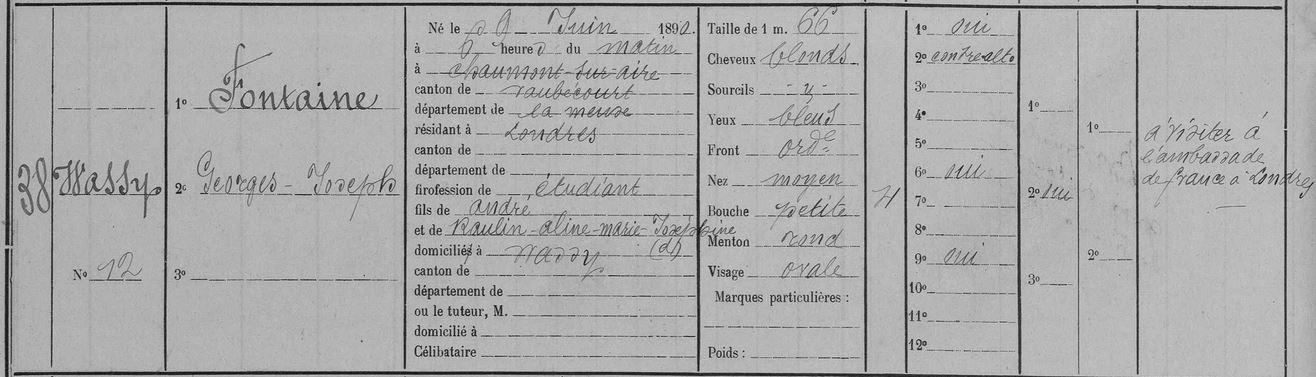 38
Wassy
Nº 12
1º Fontaine
2º Georges - Joseph
3º
Né le 9 Juin 1890.
à 6 heures du matin
à chaumont-sur-aire
canton de vaubécourt
département de la meuse
résidant à Londres
canton de
département de
firofession de étudiant
fils de andré
et de Raulin-aline-marie-Joséphine
domiciliés à Wassy (d)
canton de
département de
ou le tuteur, M.
domicilié à
Célibataire
Taille de 1 m. 66
Cheveux blonds
Sourcils - y -
Yeux bleus
Front ordre
Nez moyen
Bouche petite
Menton rond
Visage ovale
Marques particulières :
Poids :
4
1º oui
2º contre-alto
3º
4º
5º
6º oui
7º
8º
9º oui
10º
11º
12º
1º
2º oui
3º
1º
2º
à visiter à
l'ambassade
de france à Londres